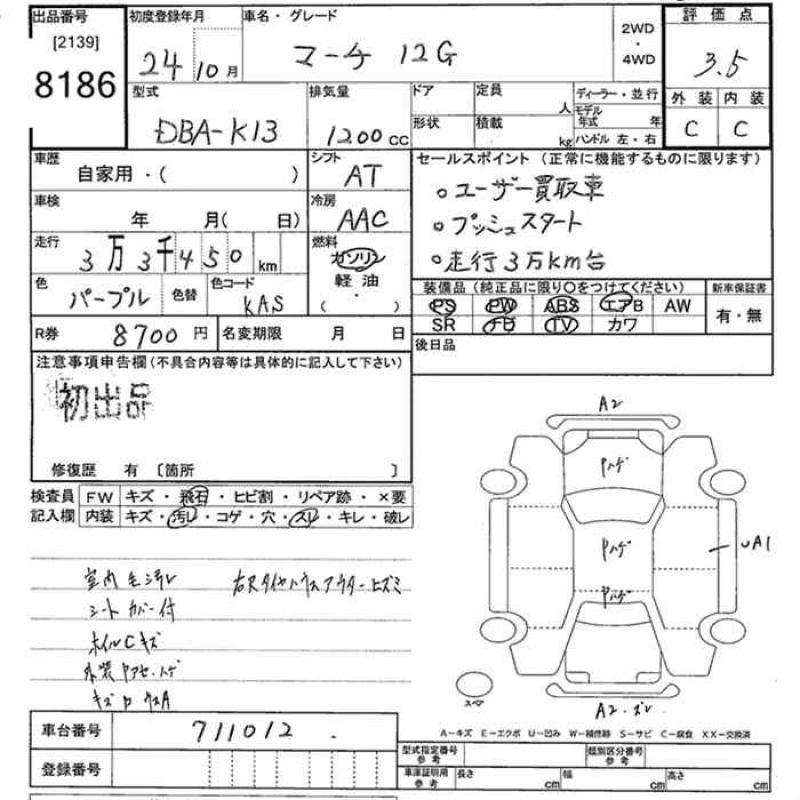 出品番号 初度登録年月 車名・グレード 評価点
[2139] 24 10月 マーチ 12G 2WD・4WD 3.5
8186 型式 排気量 ドア 定員 人 ディーラー・並行 外装 内装
DBA-K13 1200cc 形状 積載 kg モデル年式 年 ハンドル 左・右 C C
車歴 自家用・( ) シフト AT セールスポイント (正常に機能するものに限ります)
車検 年 月( 日) 冷房 AAC ○ユーザー買取車
○プッシュスタート
走行 3万3千450km 燃料 ガソリン 軽油 ( ・ ) ○走行3万km台
色 パープル 色替 色コード KAS 装備品(純正品に限り○をつけてください) 新車保証書
PS PW ABS エアB AW 有・無
R券 8700円 名変期限 月 日 SR TV カワ
注意事項申告欄(不具合内容等は具体的に記入して下さい) 後日品
初出品
修復歴 有 〔箇所 〕
検査員 FW キズ・飛石・ヒビ割・リペア跡・×要
記入欄 内装 キズ・汚レ・コゲ・穴・スレ・キレ・破レ
A2
ハゲ
ハゲ
UA1
ハゲ
A2.ズレ
室内 汚レ
シートカバー付
ホイルCキズ
外装
キズ
車台番号 711012
登録番号
A-キズ E-エクボ U-凹み W-補修跡 S-サビ C-腐食 XX-交換済
型式指定番号 参考 類別区分番号 参考
車庫証明用 参考 長さ cm 幅 cm 高さ cm